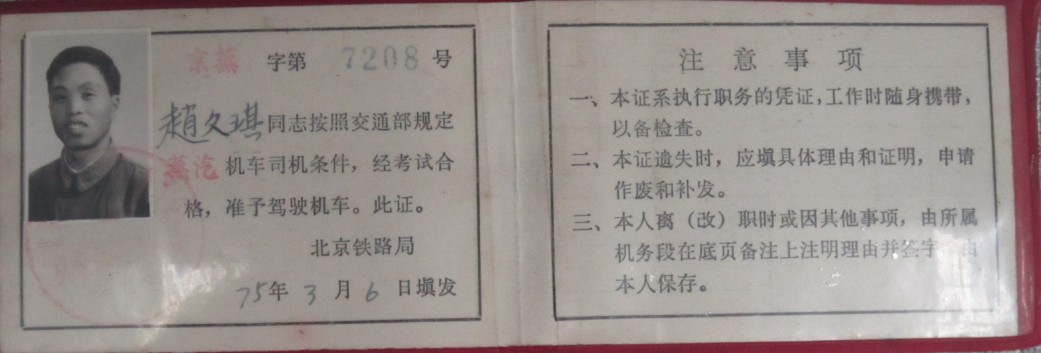 京蒸 字第 7208 号
趙久琪同志按照交通部规定
蒸汽机车司机条件，经考试合
格，准予驾驶机车。此证。
北京铁路局
75年3月6日填发
注意事项
一、本证系执行职务的凭证，工作时随身携带，
以备检查。
二、本证遗失时，应填具体理由和证明，申请
作废和补发。
三、本人离（改）职时或因其他事项，由所属
机务段在底页备注上注明理由并签字，由
本人保存。